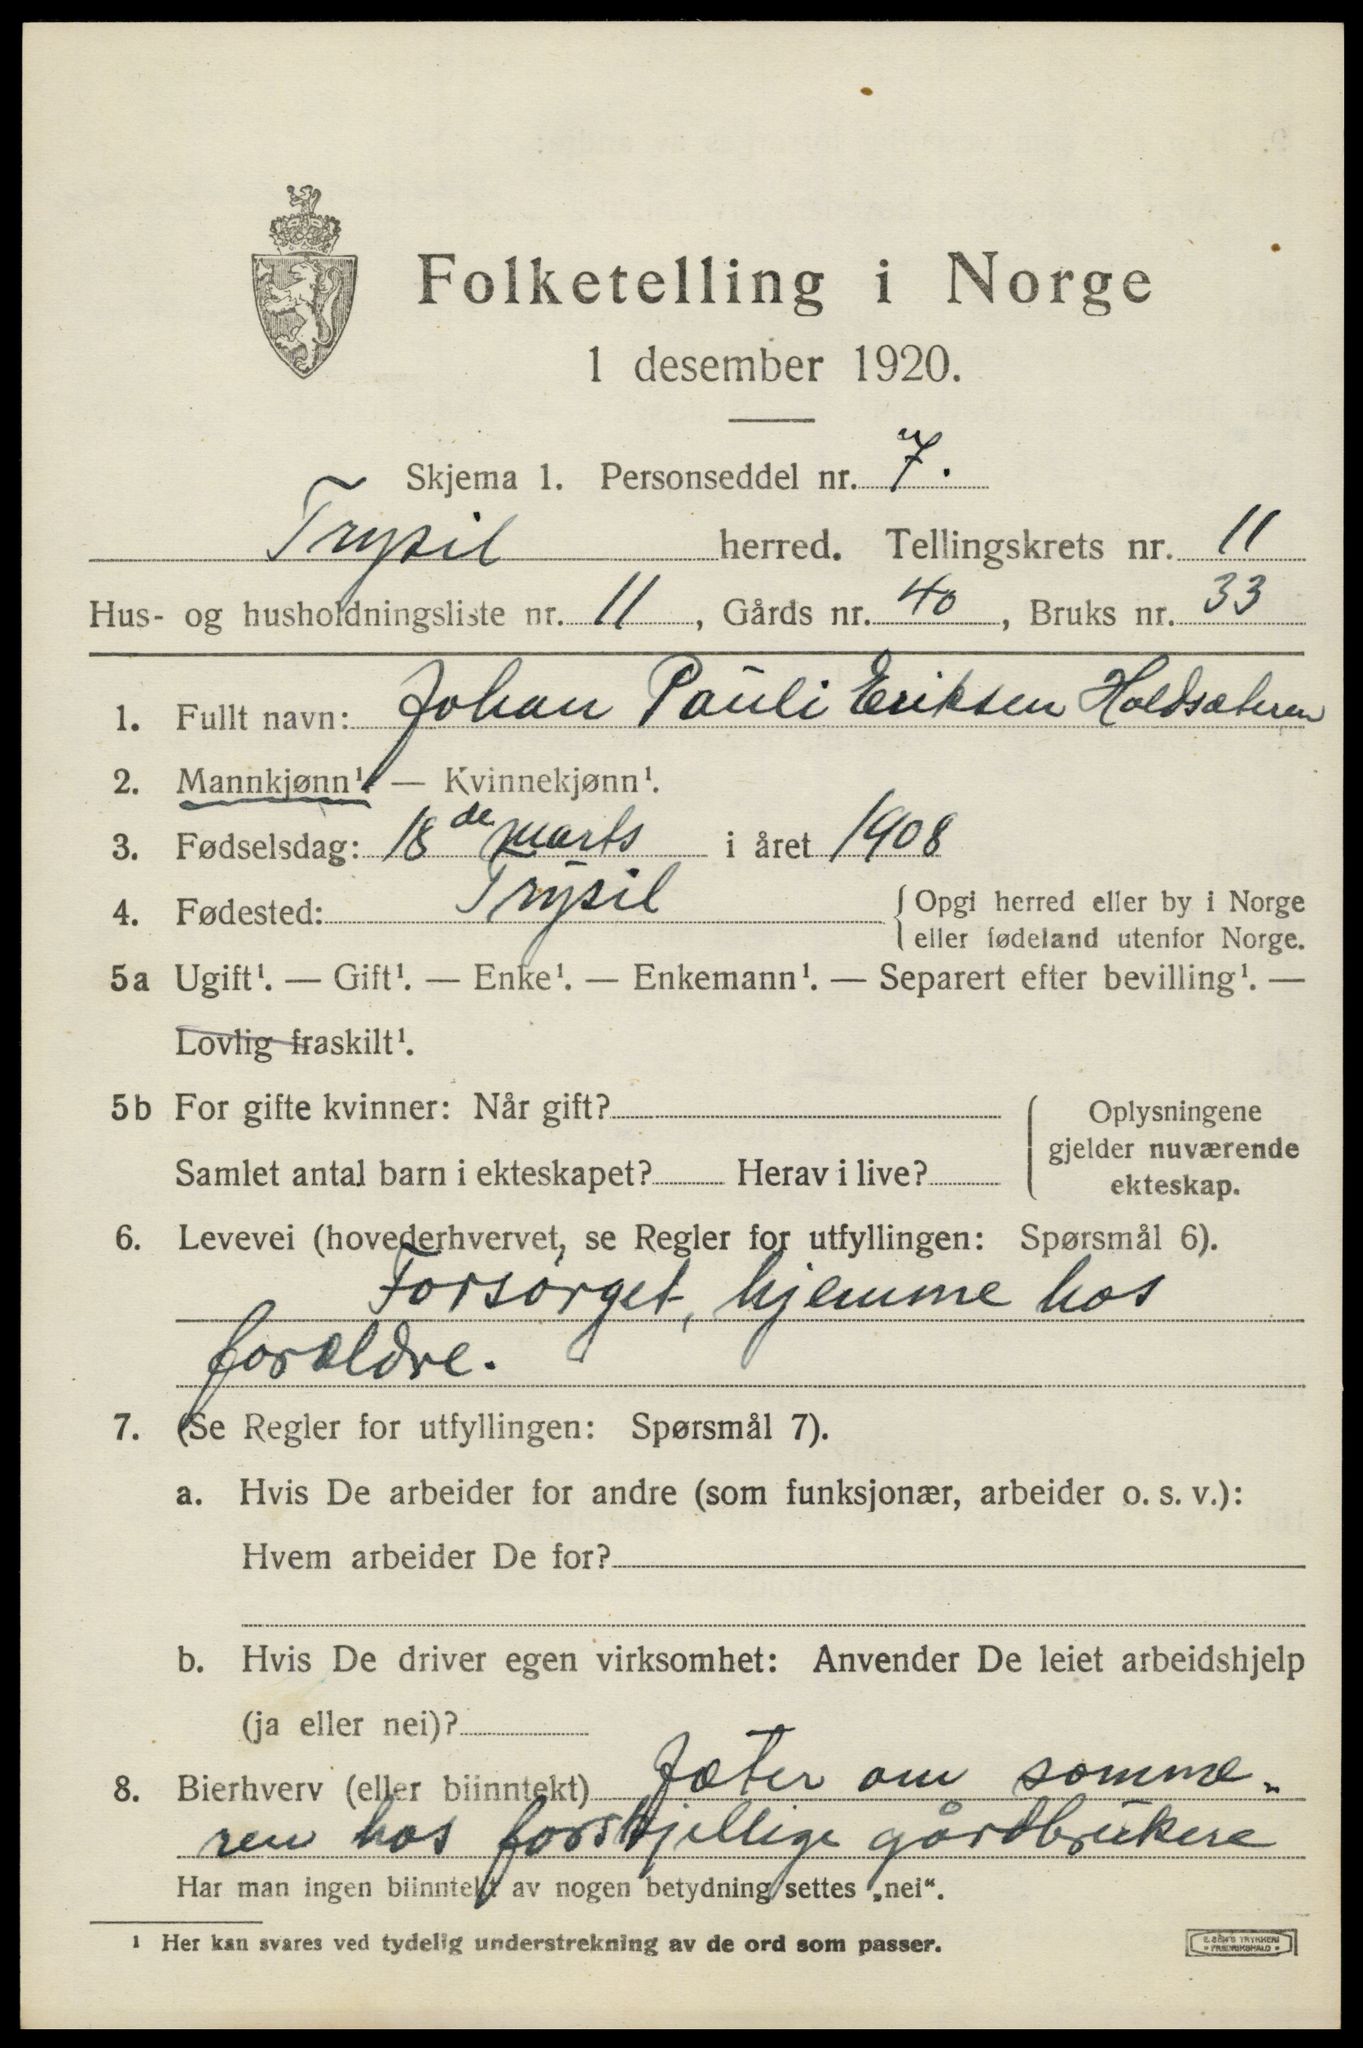 Folketelling i Norge
1 desember 1920.
Skjema 1. Personseddel nr. 7.
Trysil herred. Tellingskrets nr. 11
Hus- og husholdningsliste nr. 11, Gårds nr. 40, Bruks nr. 33
1. Fullt navn: Johan Pauli Eriksen Holdsæteren
2. Mannkjønn¹. — Kvinnekjønn¹.
3. Fødselsdag: 18de marts i året 1908
4. Fødested: Trysil { Opgi herred eller by i Norge
eller fødeland utenfor Norge.
5a Ugift¹. — Gift¹. — Enke¹. — Enkemann¹. — Separert efter bevilling¹. —
Lovlig fraskilt¹.
5b For gifte kvinner: Når gift?
Samlet antal barn i ekteskapet? Herav i live?
Oplysningene
gjelder nuværende
ekteskap.
6. Levevei (hovederhvervet, se Regler for utfyllingen: Spørsmål 6).
Forsørget, hjemme hos
forældre.
7. (Se Regler for utfyllingen: Spørsmål 7).
a. Hvis De arbeider for andre (som funksjonær, arbeider o. s. v.):
Hvem arbeider De for?
b. Hvis De driver egen virksomhet: Anvender De leiet arbeidshjelp
(ja eller nei)?
8. Bierhverv (eller biinntekt) Jæter om somme„
ren hos forskjellige gårdbrukere
Har man ingen biinntekt av nogen betydning settes „nei“.
¹ Her kan svares ved tydelig understrekning av de ord som passer.
E. SEM'S TRYKKERI
* FREDRIKSHALD *